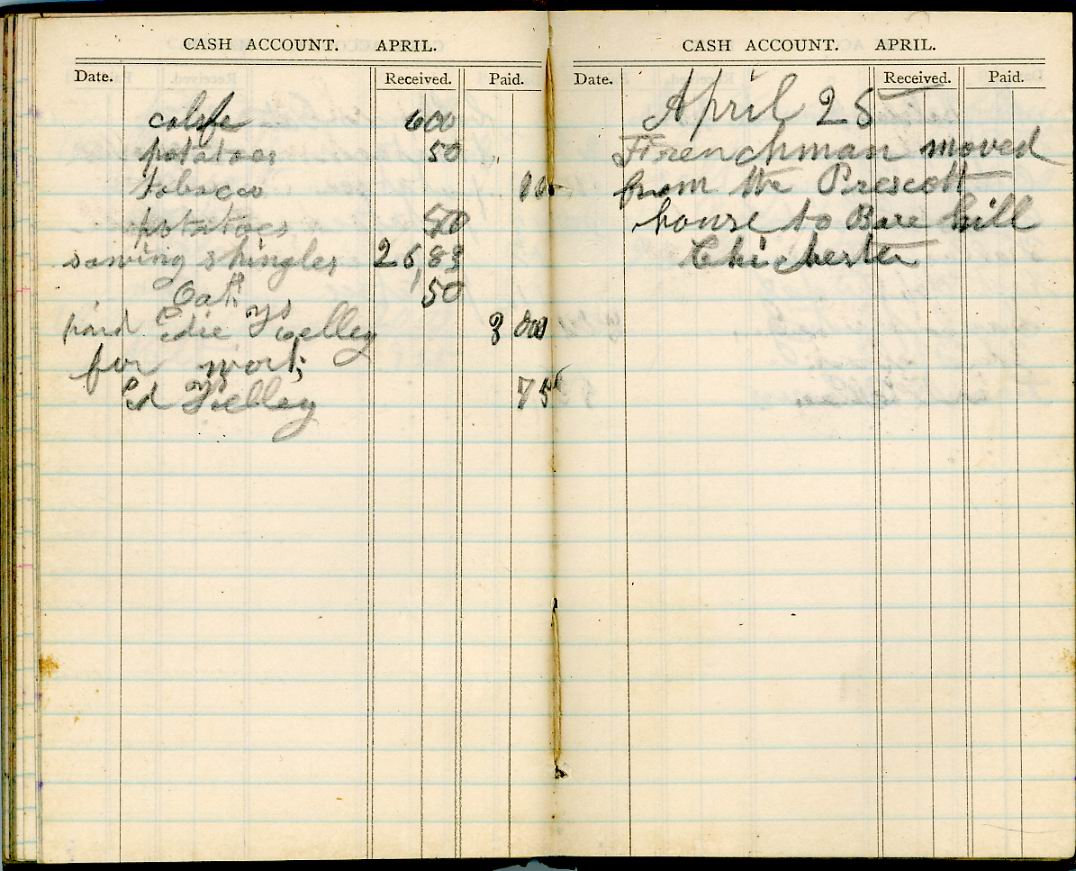 CASH ACCOUNT. APRIL.
Date. Received. Paid.
calfe 600
potatoes 50
tobacco 10
potatoes 50
sawing shingles 26,83
50
paid Edie Kelley 3 00
for work
Ed Kelley 75
CASH ACCOUNT. APRIL.
Date. Received. Paid.
April 25
Frenchman moved
from the Prescott
house to Bare hill
Chichester